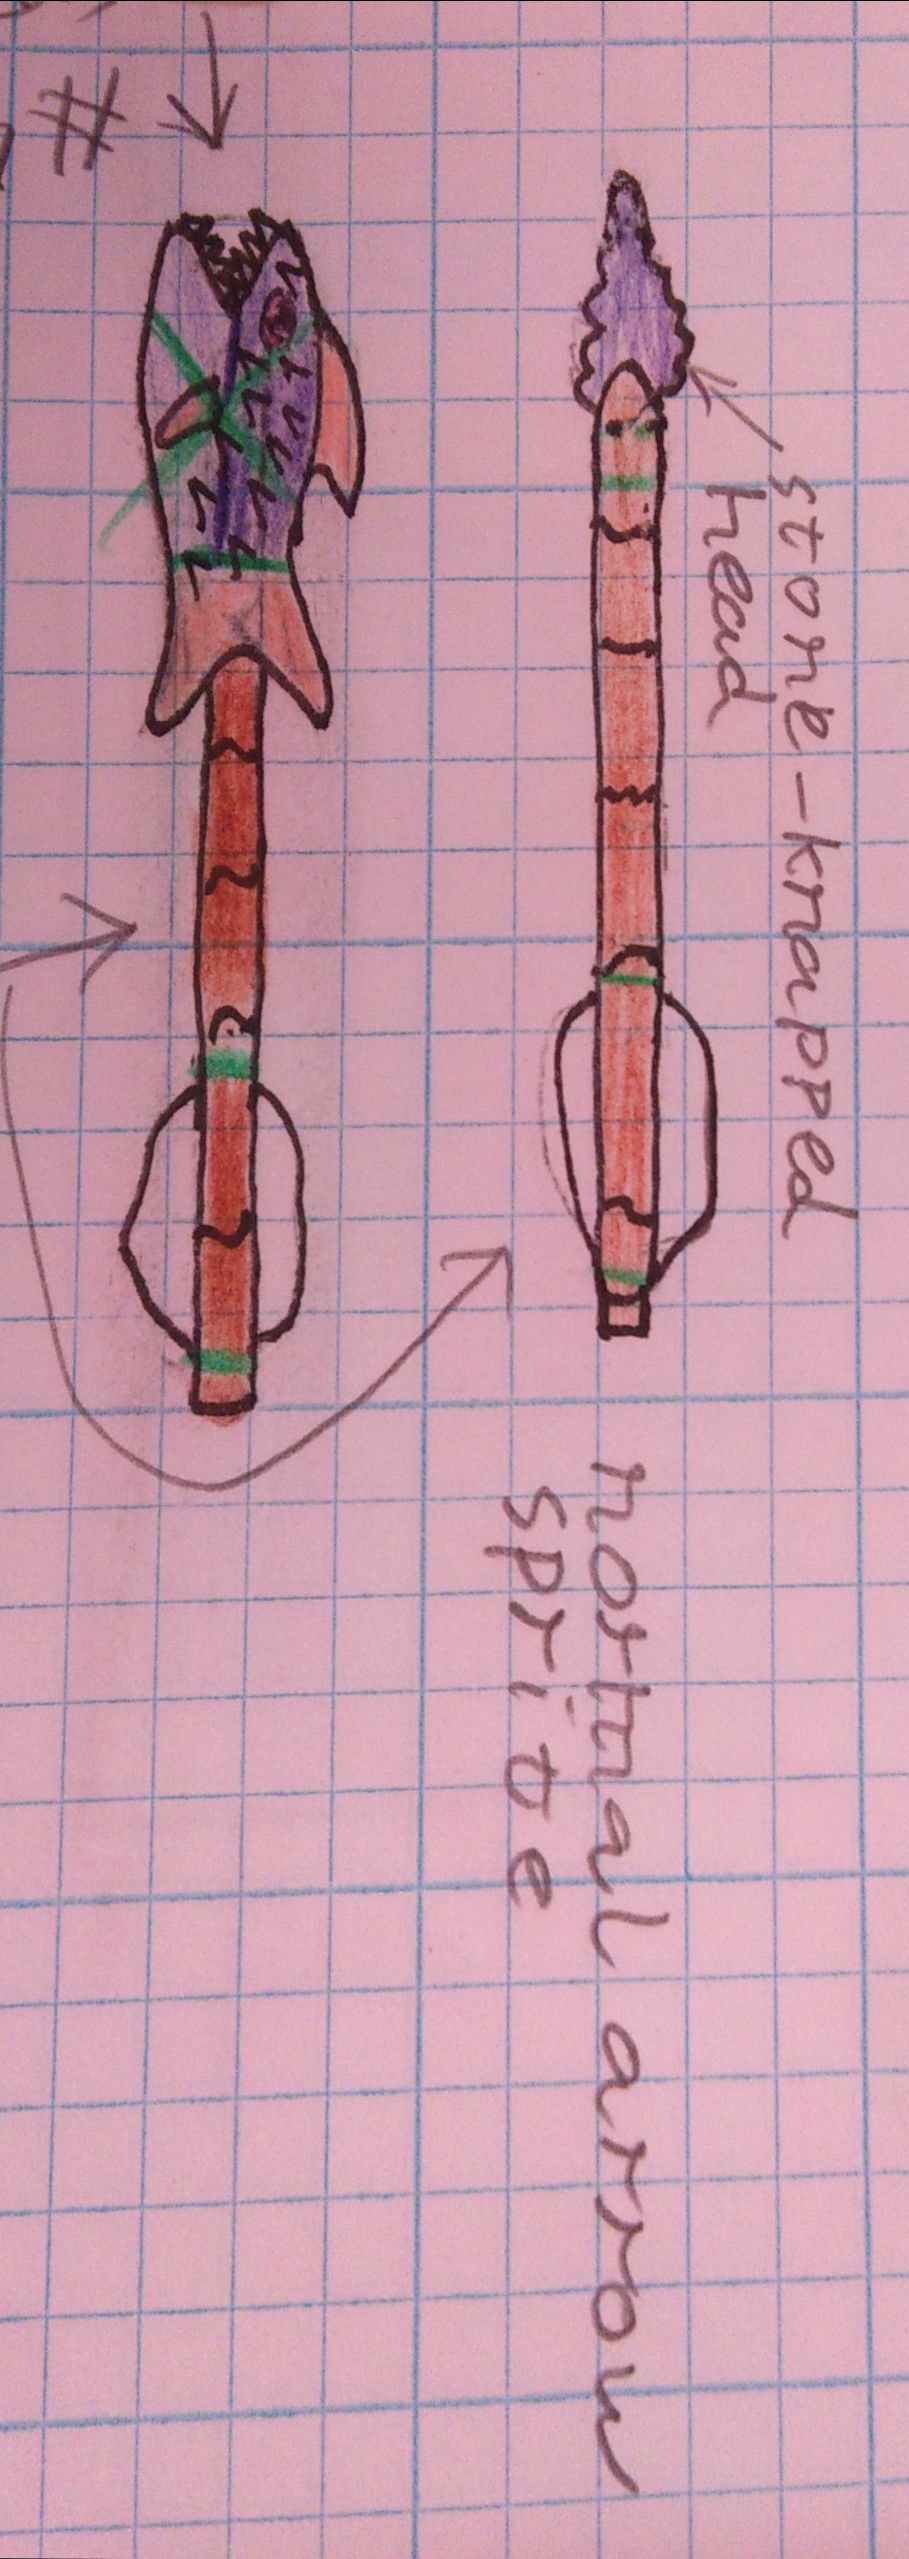 stone-knapped
head
normal arrow
sprite
#